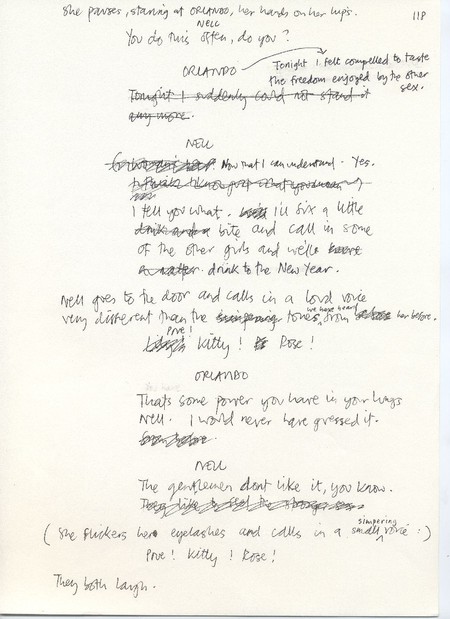 She pauses, staring at ORLANDO, her hands on her hips.
118
NELL
You do this often, do you?
ORLANDO
Tonight I felt compelled to taste
the freedom enjoyed by the other
sex.
Tonight I suddenly could not stand it
any more.
NELL
Now that I can understand. Yes.
I tell you what. I'll fix a little
bite and call in some
of the other girls and we'll
drink to the New Year.
Nell goes to the door and calls in a loud voice
very different than the simpering tones we have heard from her before.
Prue!
Kitty! Rose!
ORLANDO
Thats some power you have in your lungs
Nell. I would never have guessed it.
NELL
The gentlemen dont like it, you know.
(She flickers her eyelashes and calls in a small simpering voice:)
Prue! Kitty! Rose!
They both laugh.